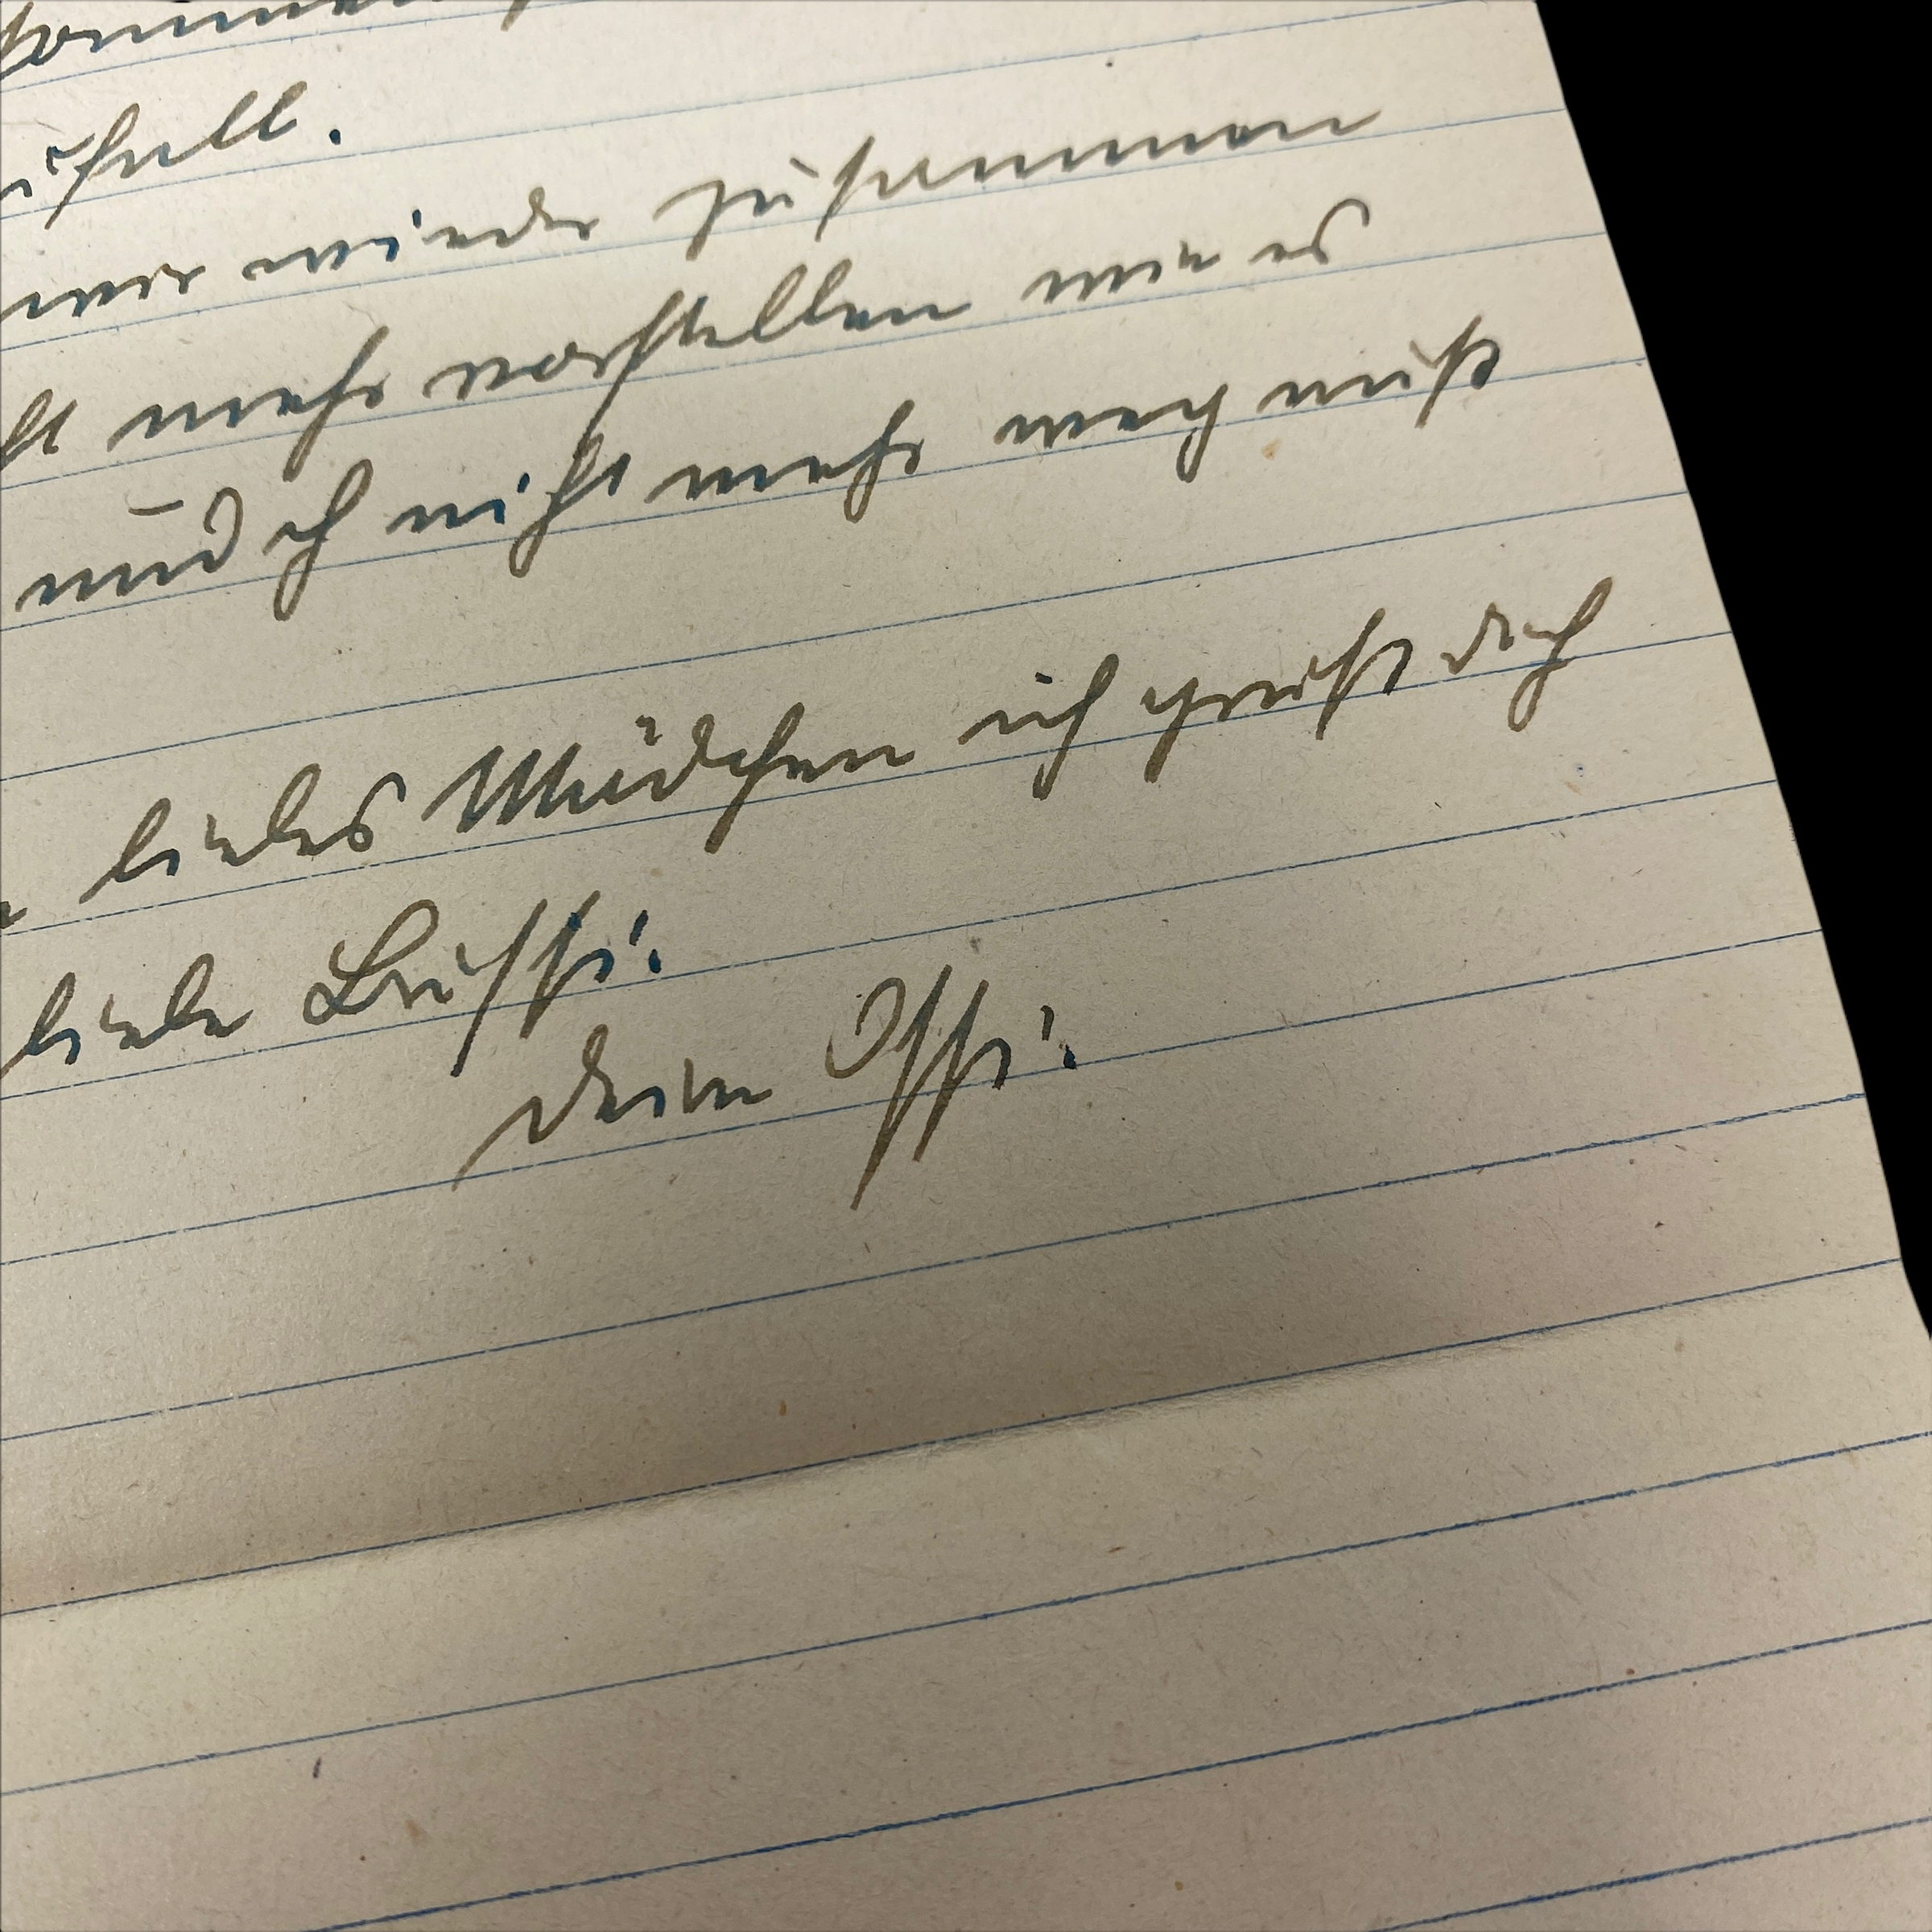 wir wieder zusammen
mehr vorstellen wie es
und ich nicht mehr weg muß
liebes Mädchen ich grüß dich
liebe Bussi.
Deine Ossi.